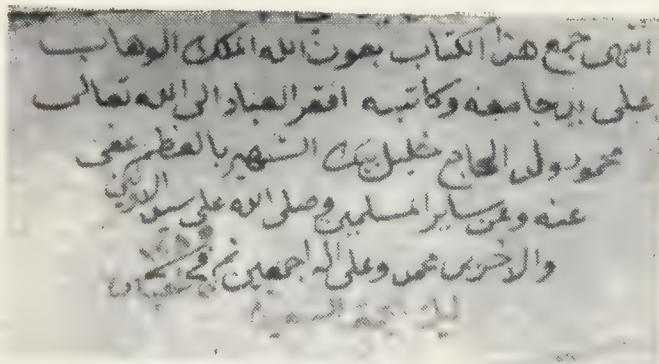 انتهى جمع هذا الكتاب بعون الله الملك الوهاب
على يد جامعه وكاتبه افقر العباد الى الله تعالى
محمود ولد الحاج خليل بيك الشهير بالعظم عفى
عنه وعن ساير المسلمين وصلى الله على سيد الاولين
والاخرين محمد وعلى اله اجمعين في
ليلة